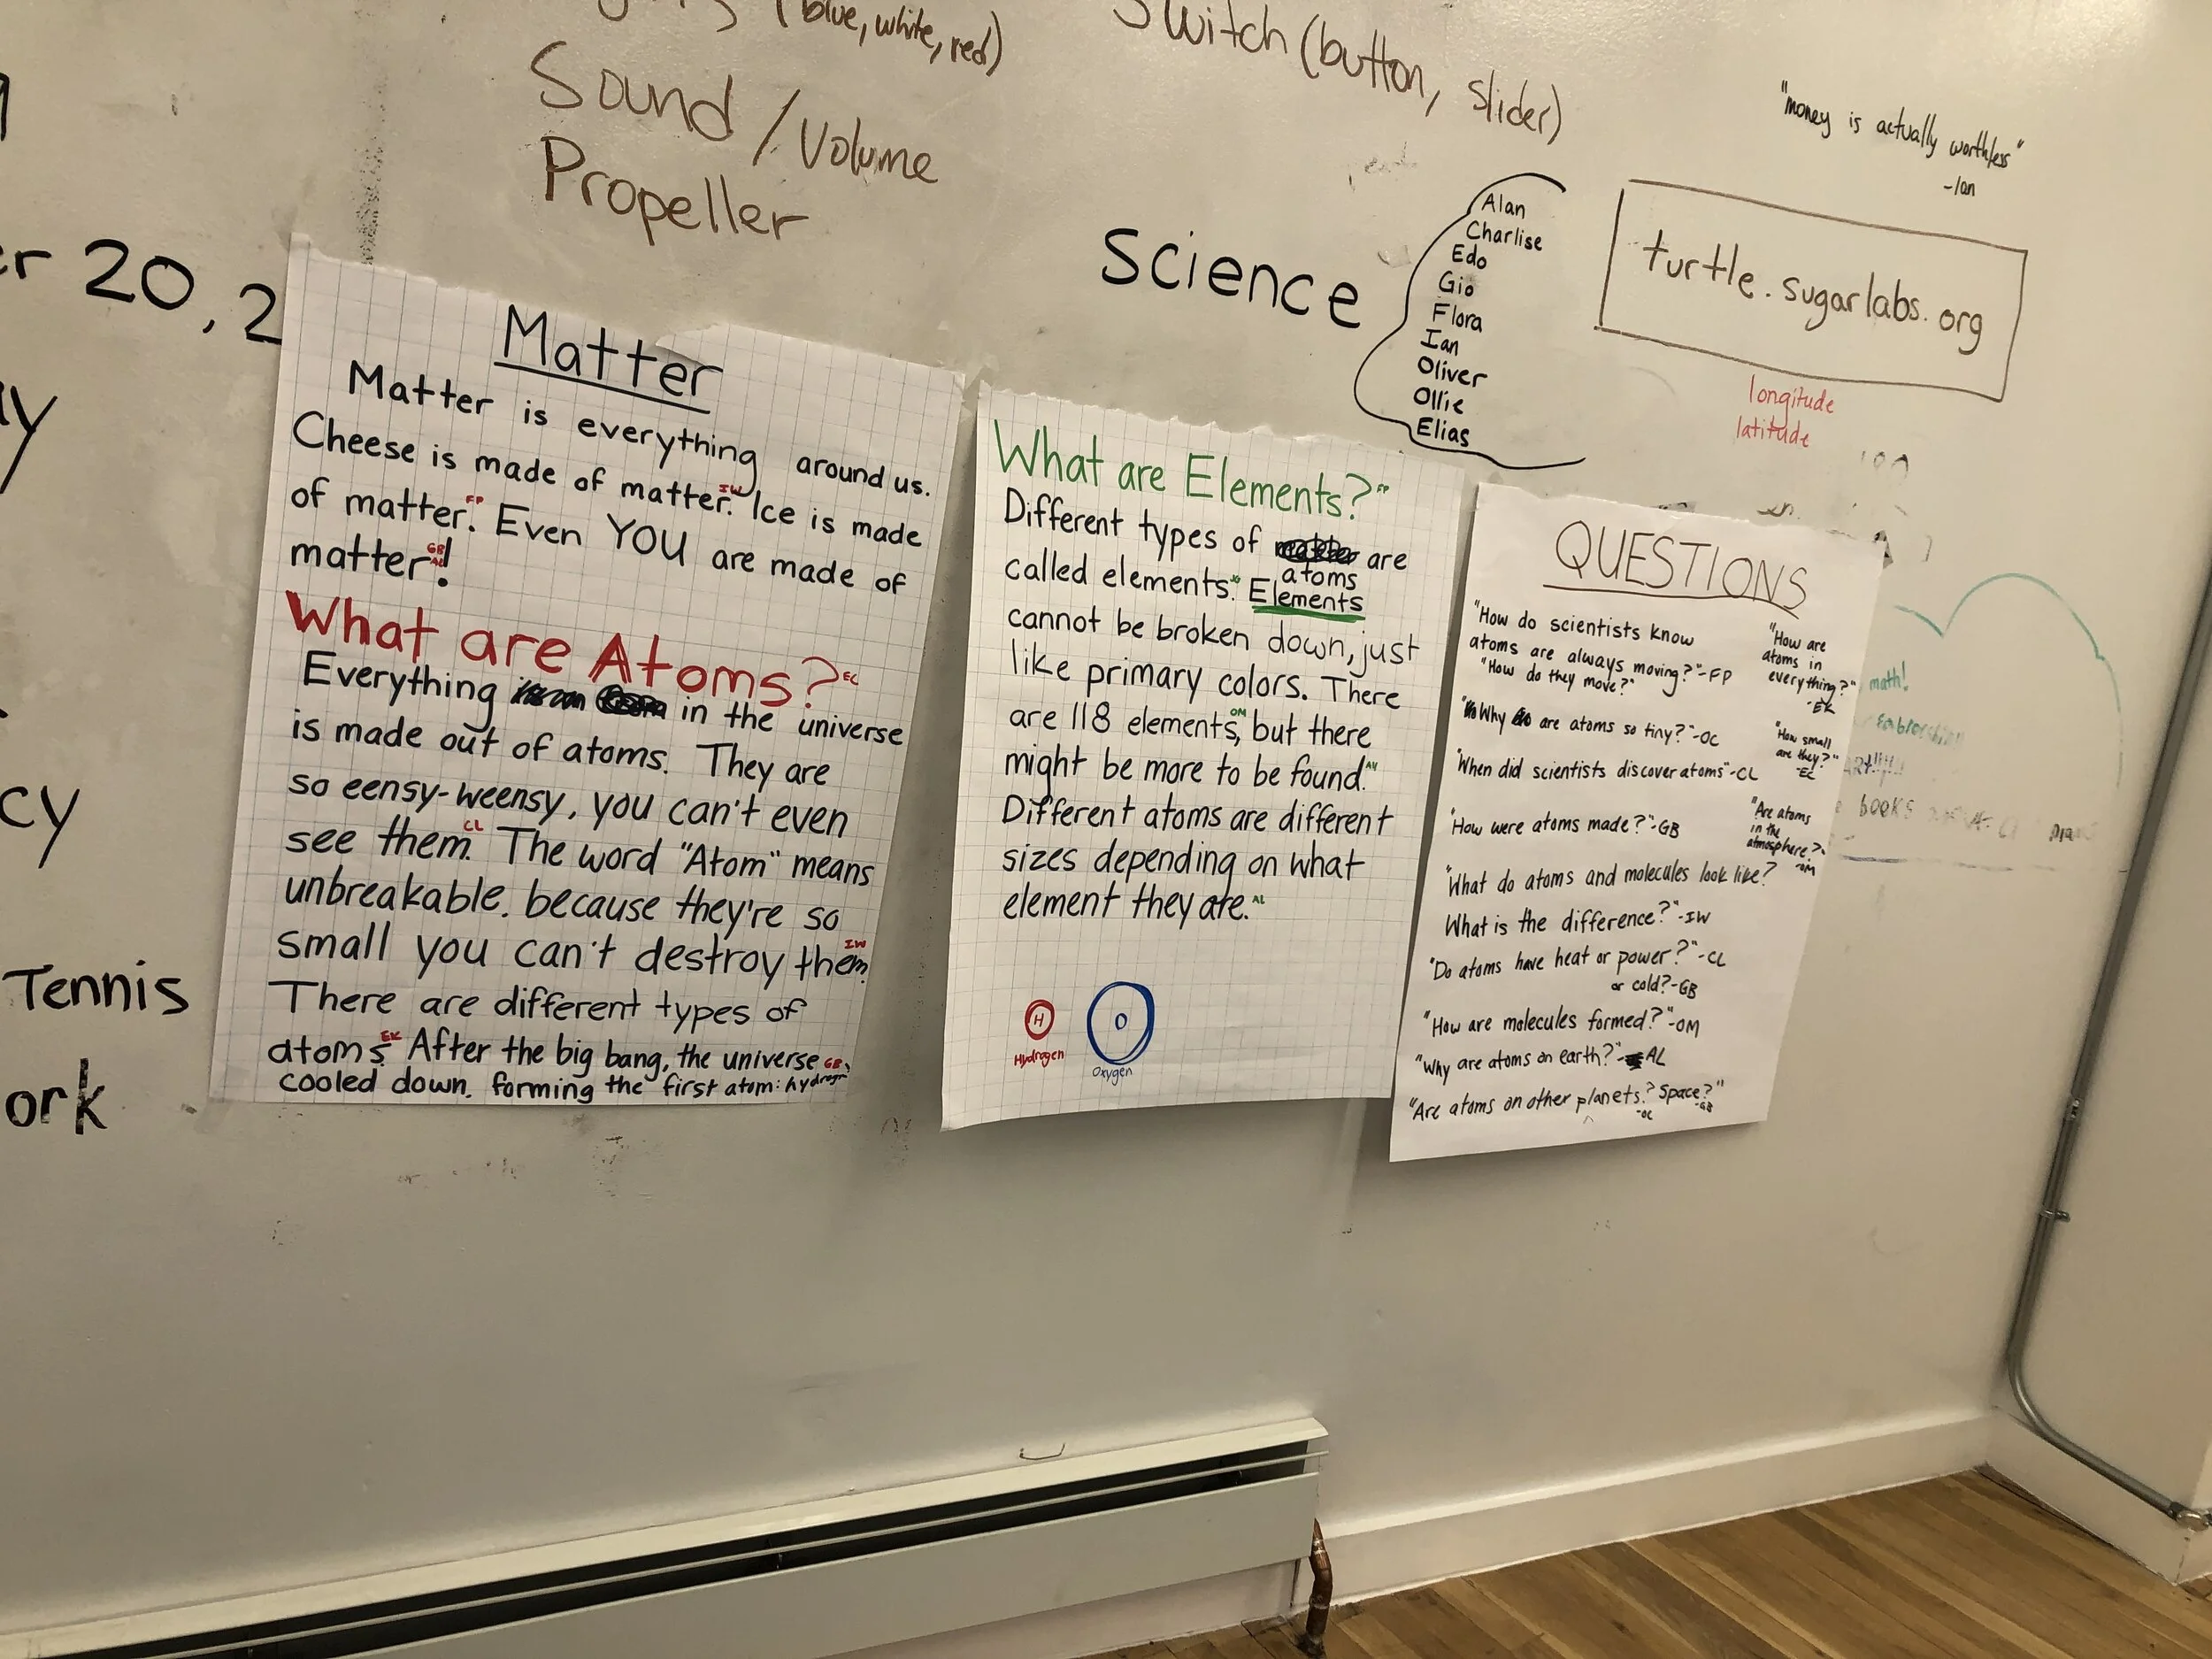 (blue, white, red)
Switch (button, slider)
Sound / Volume
Propeller
"money is actually worthless"
-Ian
20, 2
Tennis
ork
cy
Science
Alan
Charlise
Edo
Gio
Flora
Ian
Oliver
Ollie
Elias
turtle.sugarlabs.org
longitude
latitude
Matter
Matter is everything around us.
Cheese is made of matter." IW Ice is made
of matter." FP Even YOU are made of
matter"! GB AL
What are Atoms?" EC
Everything in the universe
is made out of atoms. They are
so eensy-weensy, you can't even
see them." CL The word "Atom" means
unbreakable. because they're so
small you can't destroy them." IW
There are different types of
atoms." EK After the big bang, the universe
cooled down. forming the first atom: hydrogen." GB
What are Elements?" FP
Different types of are
atoms
called elements." Elements
cannot be broken down, just
like primary colors. There
are 118 elements," OM but there
might be more to be found." AV
Different atoms are different
sizes depending on what
element they are." AL
H
Hydrogen
O
Oxygen
QUESTIONS
"How do scientists know
atoms are always moving?"-FP
"How do they move?"
"Why are atoms so tiny?"-OC
"When did scientists discover atoms"-CL
"How were atoms made?"-GB
"What do atoms and molecules look like?
What is the difference?"-IW
"Do atoms have heat or power?"-CL
or cold?-GB
"How are molecules formed?"-OM
"Why are atoms on earth?"-AL
"Are atoms on other planets? Space?"
-OC -GB
"How are
atoms in
everything?"
-EK
"How small
are they?"
-EC
"Are atoms
in the
atmosphere?"
-OM
math!
books